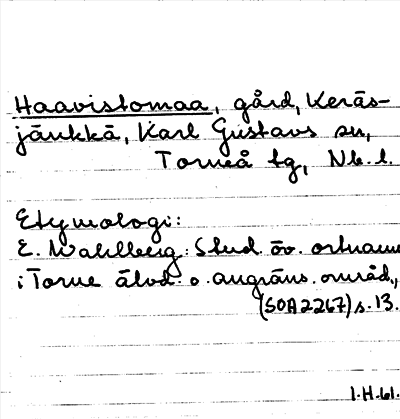 Haavistomaa, gård, Keräs-
jänkkä, Karl Gustavs sn,
Torneå tg, Nb. l.
Etymologi:
E. Wahlberg: Stud. öv. ortnamn
i Torne älvd. o. angräns. områd.,
(SOA 2267) s. 13.
1.H.61.